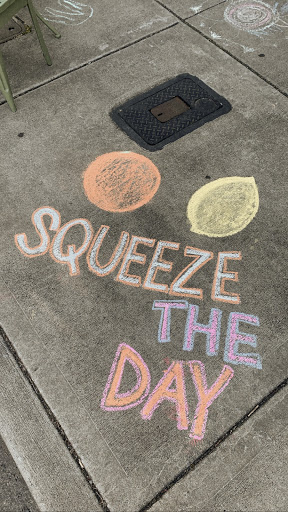 SQUEEZE
THE
DAY